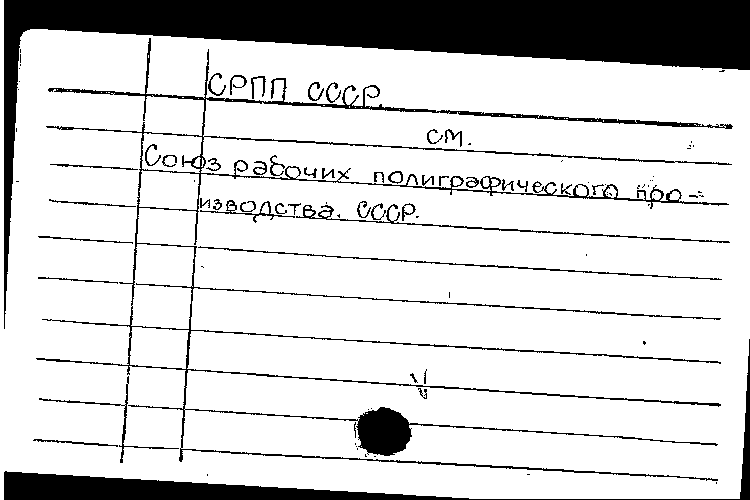 СРПП СССР.
см.
Союз рабочих полиграфического про-
изводства. СССР.